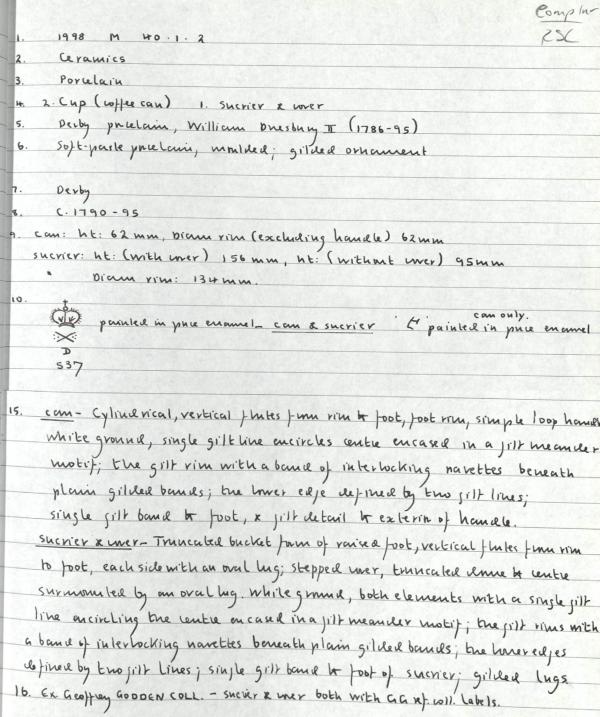 Complete
RSC
1. 1998 M 40.1.2
2. Ceramics
3. Porcelain
4. 2. Cup (coffee can) 1. sucrier & cover
5. Derby porcelain, William Duesbury II (1786-95)
6. Soft-paste porcelain, moulded; gilded ornament
7. Derby
8. C. 1790-95
9. can: ht: 62 mm, Diam rim (excluding handle) 62mm
sucrier: ht: (with cover) 156 mm, ht: (without cover) 95mm
" Diam rim: 134mm.
10. painted in puce enamel - can & sucrier painted in puce enamel can only.
D
537
15. can - Cylindrical, vertical flutes from rim to foot, foot rim, simple loop handle
white ground, single gilt line encircles centre encased in a gilt meander
motif; the gilt rim with a band of interlocking navettes beneath
plain gilded bands; the lower edge defined by two gilt lines;
single gilt band to foot, & gilt detail to exterior of handle.
sucrier & cover - Truncated bucket form of raised foot, vertical flutes from rim
to foot, each side with an oval lug; stepped cover, truncated dome to centre
surmounted by an oval lug. White ground, both elements with a single gilt
line encircling the centre encased in a gilt meander motif; the gilt rims with
a band of interlocking navettes beneath plain gilded bands; the lower edges
defined by two gilt lines; single gilt band to foot of sucrier; gilded lugs
16. Ex Geoffrey GODDEN COLL. - sucrier & cover both with GG ref. coll. labels.